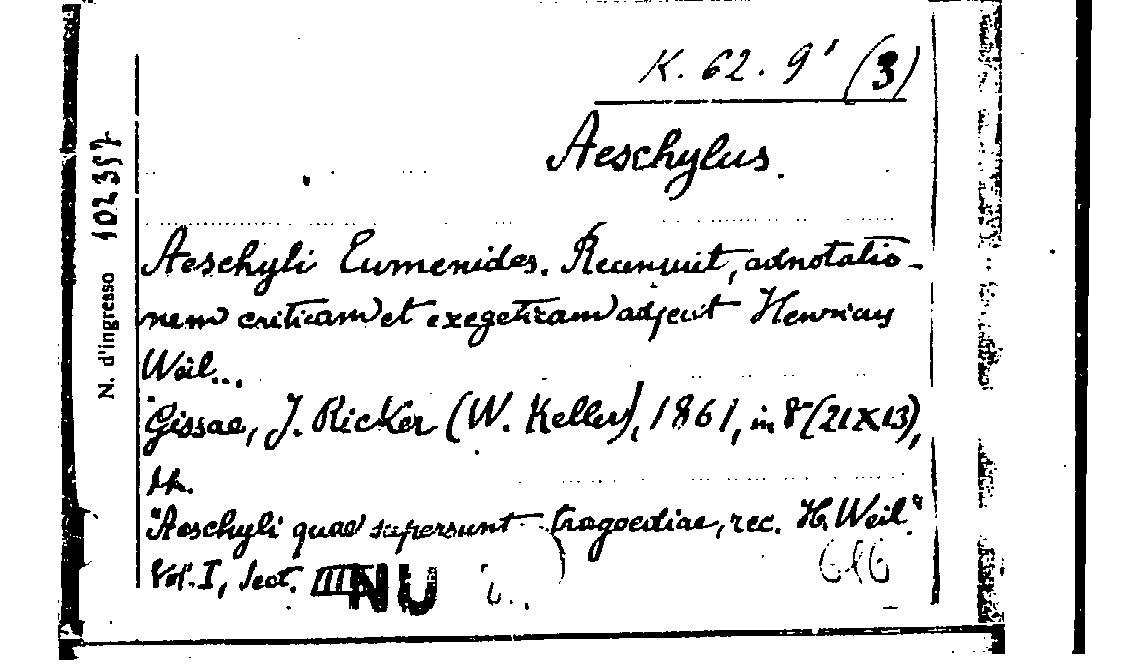 K. 62. 9' (3)
Aeschylus.
N. d'ingresso 102357
Aeschyli Eumenides. Recensuit, adnotatio-
nem criticam et exegeticam adjecit Henricus
Weil...
Gissae, J. Ricker (W. Keller), 1861, in 8° (21X13),
br.
"Aeschyli quae supersunt tragoediae, rec. H. Weil."
Vol. I, Sect. III
NU
616